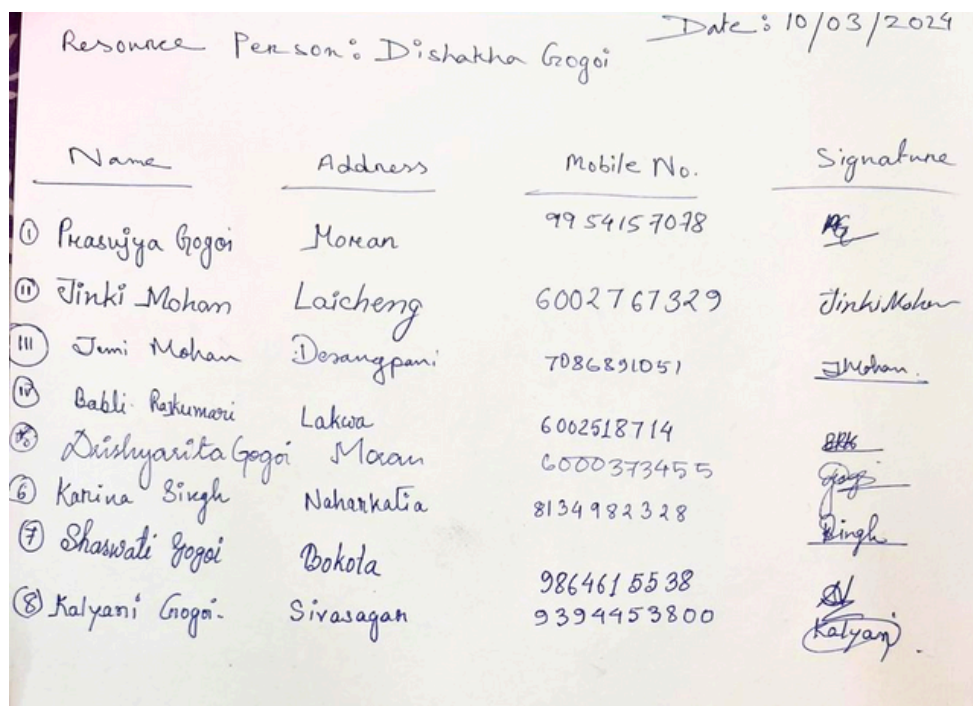 Date: 10/03/2024
Resource Person: Dishakha Gogoi
Name Address Mobile No. Signature
(i) Prasujya Gogoi Moran 9954157078 PG
(ii) Jinki Mohan Laicheng 6002767329 Jinki Mohan
(iii) Jumi Mohan Desangpani 7086891051 JMohan.
(iv) Babli Rajkumari Lakwa 6002518714 BRK
Drishyasita Gogoi Moran 6000373455 Gogoi
(6) Karina Singh Naharkatia 8134982328 Singh
(7) Shaswati Gogoi Bokota 9864615538
(8) Kalyani Gogoi. Sivasagar 9394453800 Kalyani